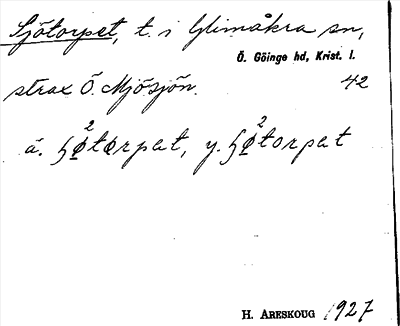 Sjötorpet, t. i Glimåkra sn,
Ö. Göinge hd, Krist. l.
strax Ö. Mjösjön. 42
ä. ɧø²tɵrpet, y. ɧø²torpet
H. ARESKOUG 1927